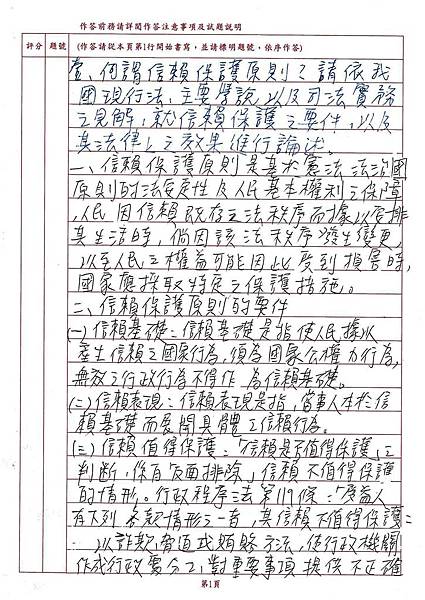 作答前務請詳閱作答注意事項及試題說明
評分 題號 (作答請從本頁第1行開始書寫，並請標明題號，依序作答)
壹、何謂信賴保護原則？請依我
國現行法、主要學說，以及司法實務
之見解，就信賴保護之要件，以及
其法律之效果進行論述。
一、信賴保護原則是基於憲法法治國
原則的法安定性及人民基本權利之保障，
人民因信賴既存之法秩序而據以安排
其生活時，倘因該法秩序發生變更，
以至人民之權益可能因此受到損害時，
國家應採取特定之保護措施。
二、信賴保護原則的要件
(一)信賴基礎：信賴基礎是指使人民據以
產生信賴之國家行為，須為國家公權力行為，
無效之行政行為不得作為信賴基礎。
(二)信賴表現：信賴表現是指，當事人本於信
賴基礎而展開具體之信賴行為。
(三)信賴值得保護：「信賴是否值得保護」之
判斷，係有「反面排除」信賴不值得保護
的情形。行政程序法第119條：「受益人
有下列各款情形之一者，其信賴不值得保護：
一以詐欺、脅迫或賄賂方法，使行政機關
作成行政處分。二、對重要事項提供不正確
第1頁